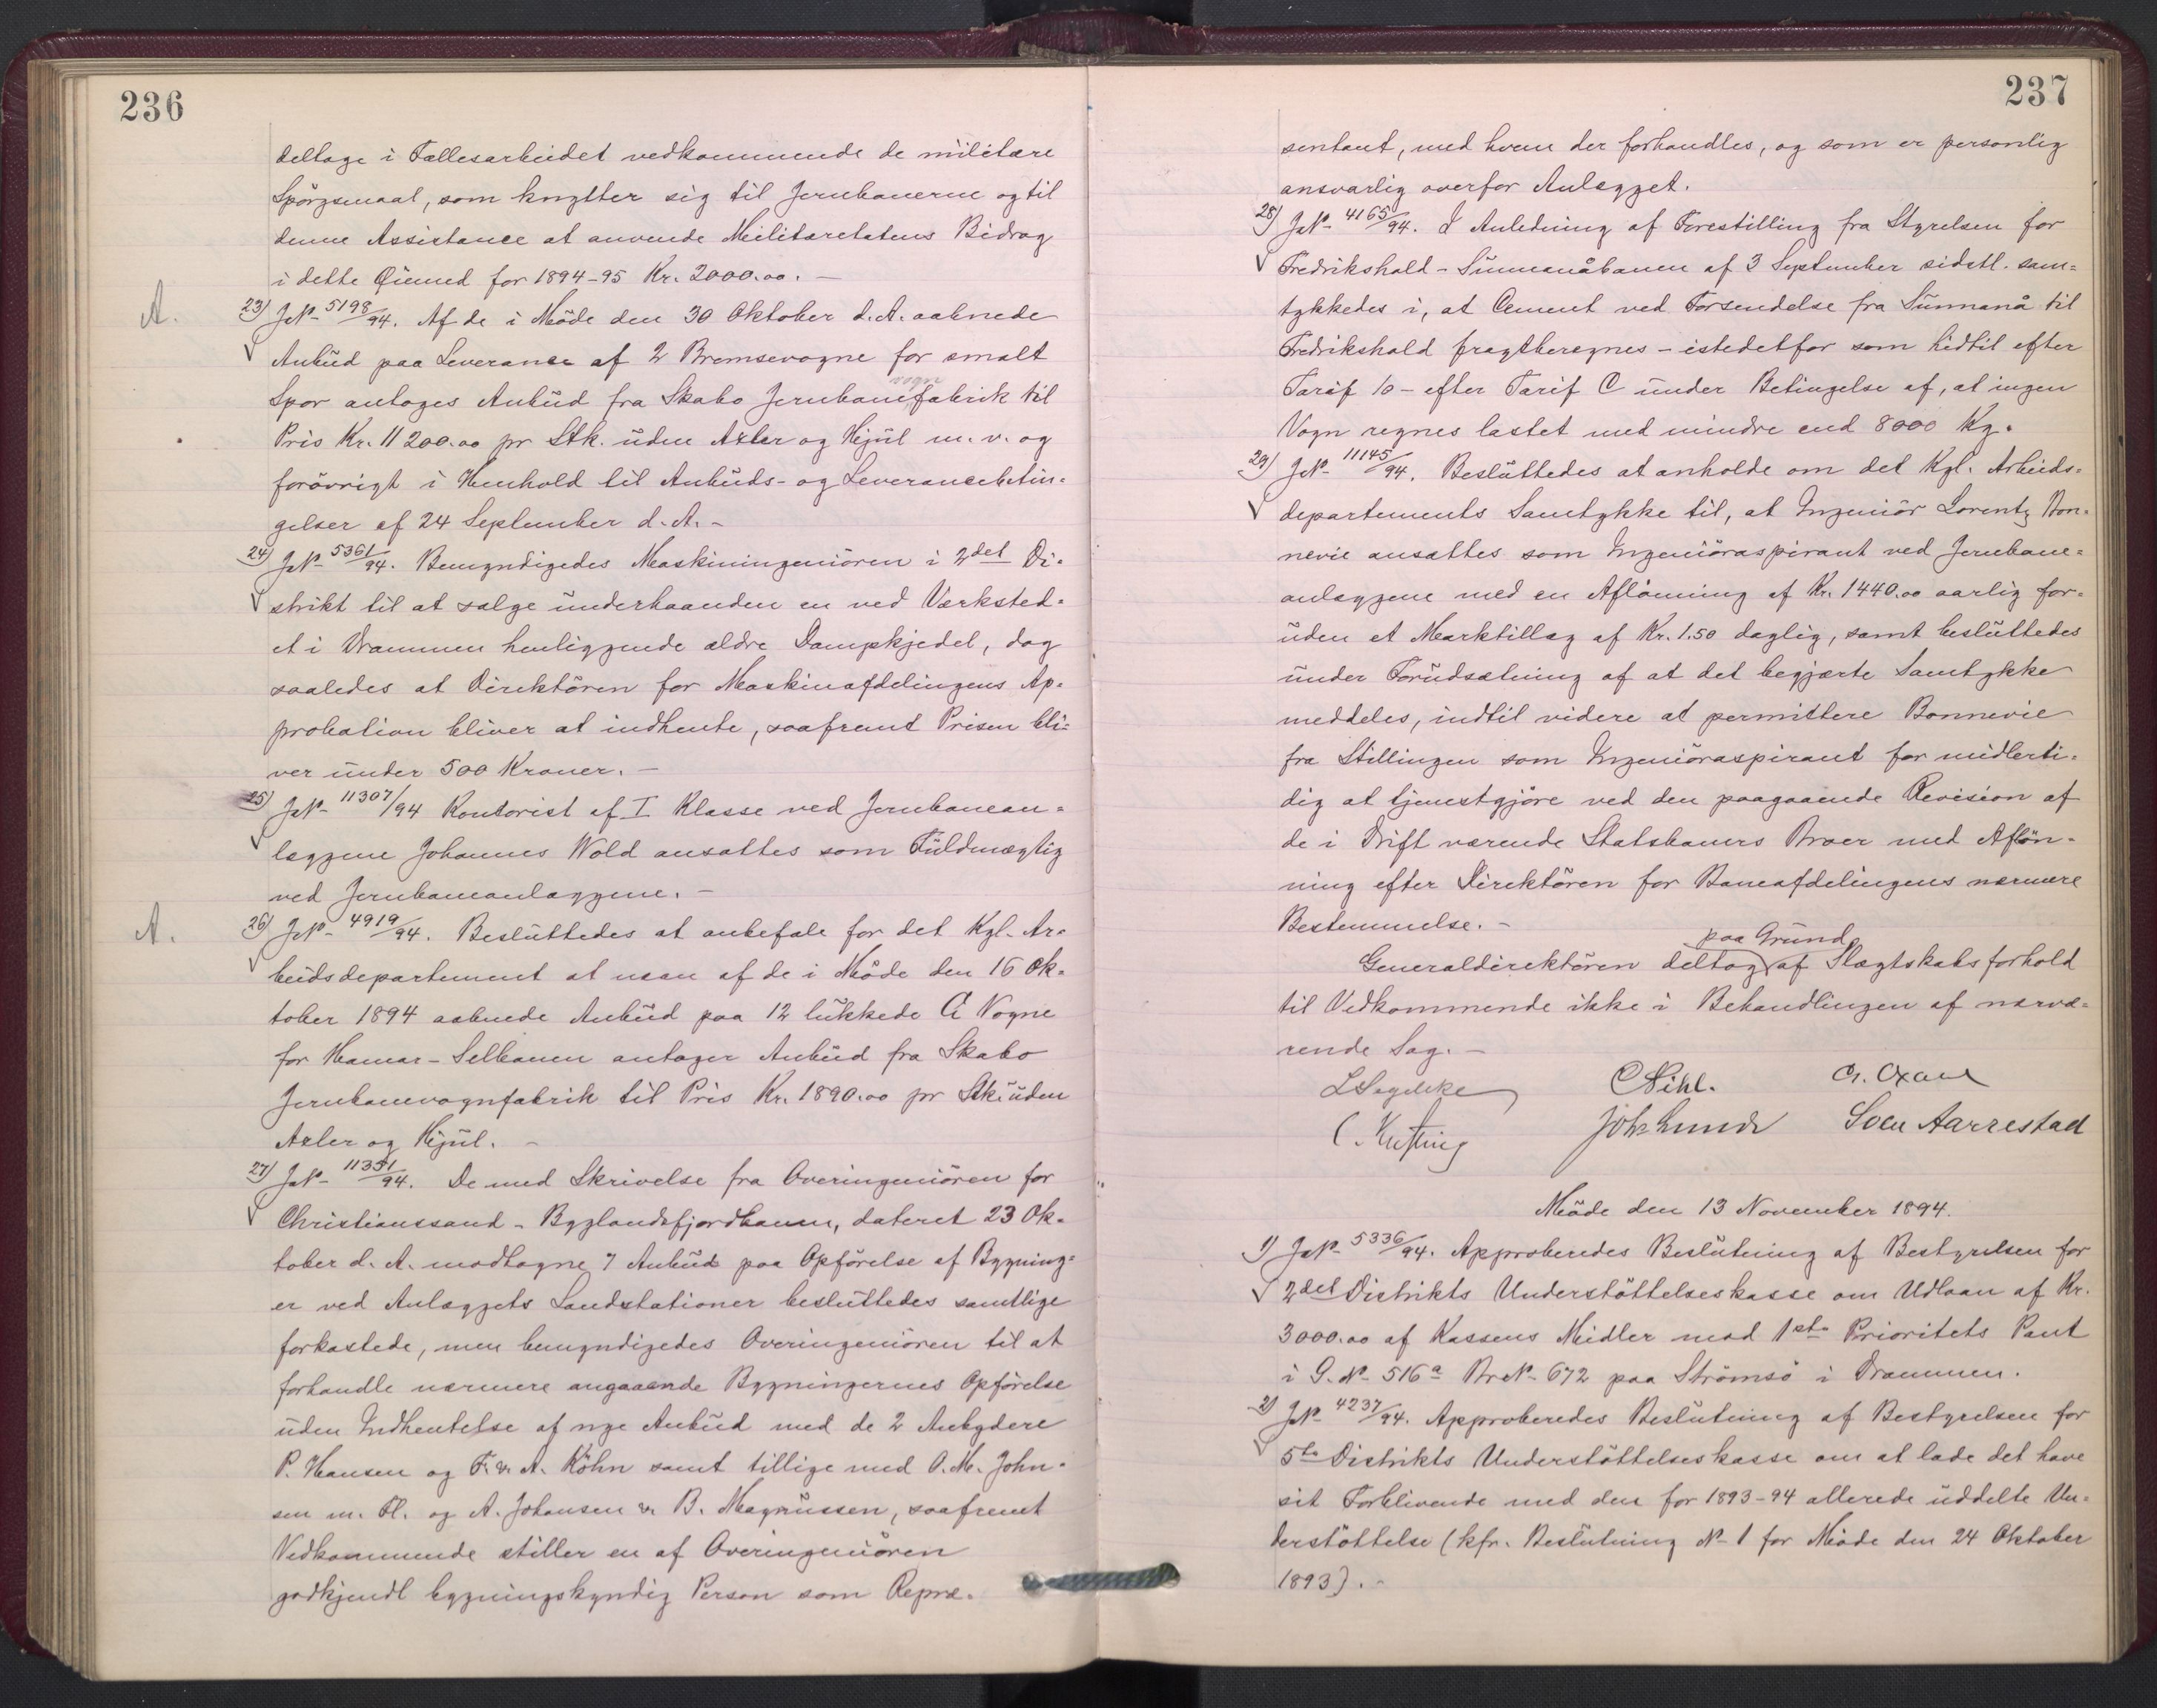 236
deltage i Fællesarbeidet vedkommende de militære
Spörgsmaal, som knytter sig til Jernbanerne og til
denne Assistance at anvende Militæretatens Bidrag
i dette Øiemed for 1894-95 Kr. 2000.00. —
A.
23) JN- 5198/94. Af de i Möde den 30 Oktober d. A. aabnede
Anbud paa Leverance af 2 Bremsevogne for smalt
Spor antoges Anbud fra Skabo Jernbanevognfabrik til
Pris Kr. 11200.00 pr Stk. uden Axler og Hjul m. v. og
forövrigt i Henhold til Anbuds- og Leverancebetin-
gelser af 24 September d. A. -
24) JN- 5361/94. Bemyndigedes Maskiningeniören i 2det Di-
strikt til at sælge underhaanden en ved Værksted-
et i Drammen henliggende ældre Dampkjedel, dog
saaledes at Direktören for Maskinafdelingens Ap-
probation bliver at indhente, saafremt Prisen bli-
ver under 500 Kroner. —
25) JN- 11307/94 Kontorist af I Klasse ved Jernbanean-
læggene Johannes Wold ansattes som Fuldmægtig
ved Jernbaneanlæggene. —
A.
26) JN- 4919/94. Besluttedes at anbefale for det Kgl. Ar-
beidsdepartement at man af de i Möde den 16 Ok-
tober 1894 aabnede Anbud paa 12 lukkede G Vogne
for Hamar-Selbanen antager Anbud fra Skabo
Jernbanevognfabrik til Pris Kr. 1890.00 pr Stk. uden
Axler og Hjul. —
27) JN- 11351/94. De med Skrivelse fra Overingeniören for
Christianssand-Byglandsfjordbanen, dateret 23 Ok-
tober d. A. modtagne 7 Anbud paa Opförelse af Bygning-
er ved Anlæggets Landstationer besluttedes samtlige
forkastede, men bemyndigedes Overingeniören til at
forhandle nærmere angaaende Bygningernes Opförelse
uden Indhentelse af nye Anbud med de 2 Anbydere
P. Hansen og F. & A. Köhn samt tillige med O. M. John-
sen m. Fl. og A. Johansen & B. Magnussen, saafremt
Vedkommende stiller en af Overingeniören
godkjendt bygningskyndig Person som Repræ-
237
sentant, med hvem der forhandles, og som er personlig
ansvarlig overfor Anlægget.
28) JN- 4165/94. I Anledning af Forestilling fra Styrelsen for
Fredrikshald-Sunnanåbanen af 3 September sidstl. sam-
tykkedes i, at Cement ved Forsendelse fra Sunnanå til
Fredrikshald fragtberegnes - istedetfor som hidtil efter
Tarif b - efter Tarif C under Betingelse af, at ingen
Vogn regnes lastet med mindre end 8000 Kg.
29) JN- 11145/94. Besluttedes at anholde om det Kgl. Arbeids-
departements Samtykke til, at Ingeniör Lorentz Bon-
nevie ansættes som Ingeniöraspirant ved Jernbane-
anlæggene med en Aflönning af Kr. 1440.00 aarlig for-
uden et Marktillæg af Kr. 1.50 daglig, samt besluttedes
under Forudsætning af at det begjærte Samtykke
meddeles, indtil videre at permittere Bonnevie
fra Stillingen som Ingeniöraspirant for midlerti-
dig at tjenestgjöre ved den paagaaende Revision af
de i Drift værende Statsbaners Broer med Aflön-
ning efter Direktören for Baneafdelingens nærmere
Bestemmelse. -
Generaldirektören deltog paa Grund af Slægtskabsforhold
til Vedkommende ikke i Behandlingen af nærvæ-
rende Sag. —
C Pihl.
Joh Lunde Sven Aarrestad
Möde den 13 November 1894.
1) JN- 5336/94. Approberedes Beslutning af Bestyrelsen for
2det Distrikts Understöttelseskasse om Udlaan af Kr.
3000.00 af Kassens Midler mod 1ste Prioritets Pant
i G. N- 516a Br N- 672 paa Strömsö i Drammen.
2) JN- 4237/94. Approberedes Beslutning af Bestyrelsen for
5te Distrikts Understöttelseskasse om at lade det have
sit Forblivende med den for 1893-94 allerede uddelte Un-
derstöttelse (kfr. Beslutning N- 1 for Möde den 24 Oktober
1893). -